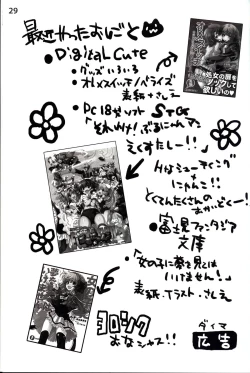 29
最近やったおしごと
・Digital Cute
・グッズいろいろ
・オトメスイッチノベライズ
表紙+さしえ
・PC18禁ソフト STG
「それいけ!ぶるにゃんマン
えくすたしー!!」
Hなシューティング
+
にゃんこ!!
とてもたくさんの
・富士見ファンタジア
文庫
「女の子に夢を見ては
いけません!」
表紙・イラスト・さしえ
ヨロシク
おなシャス!!
ダイマ
広告
処女の扉を
ノックして
欲しいの